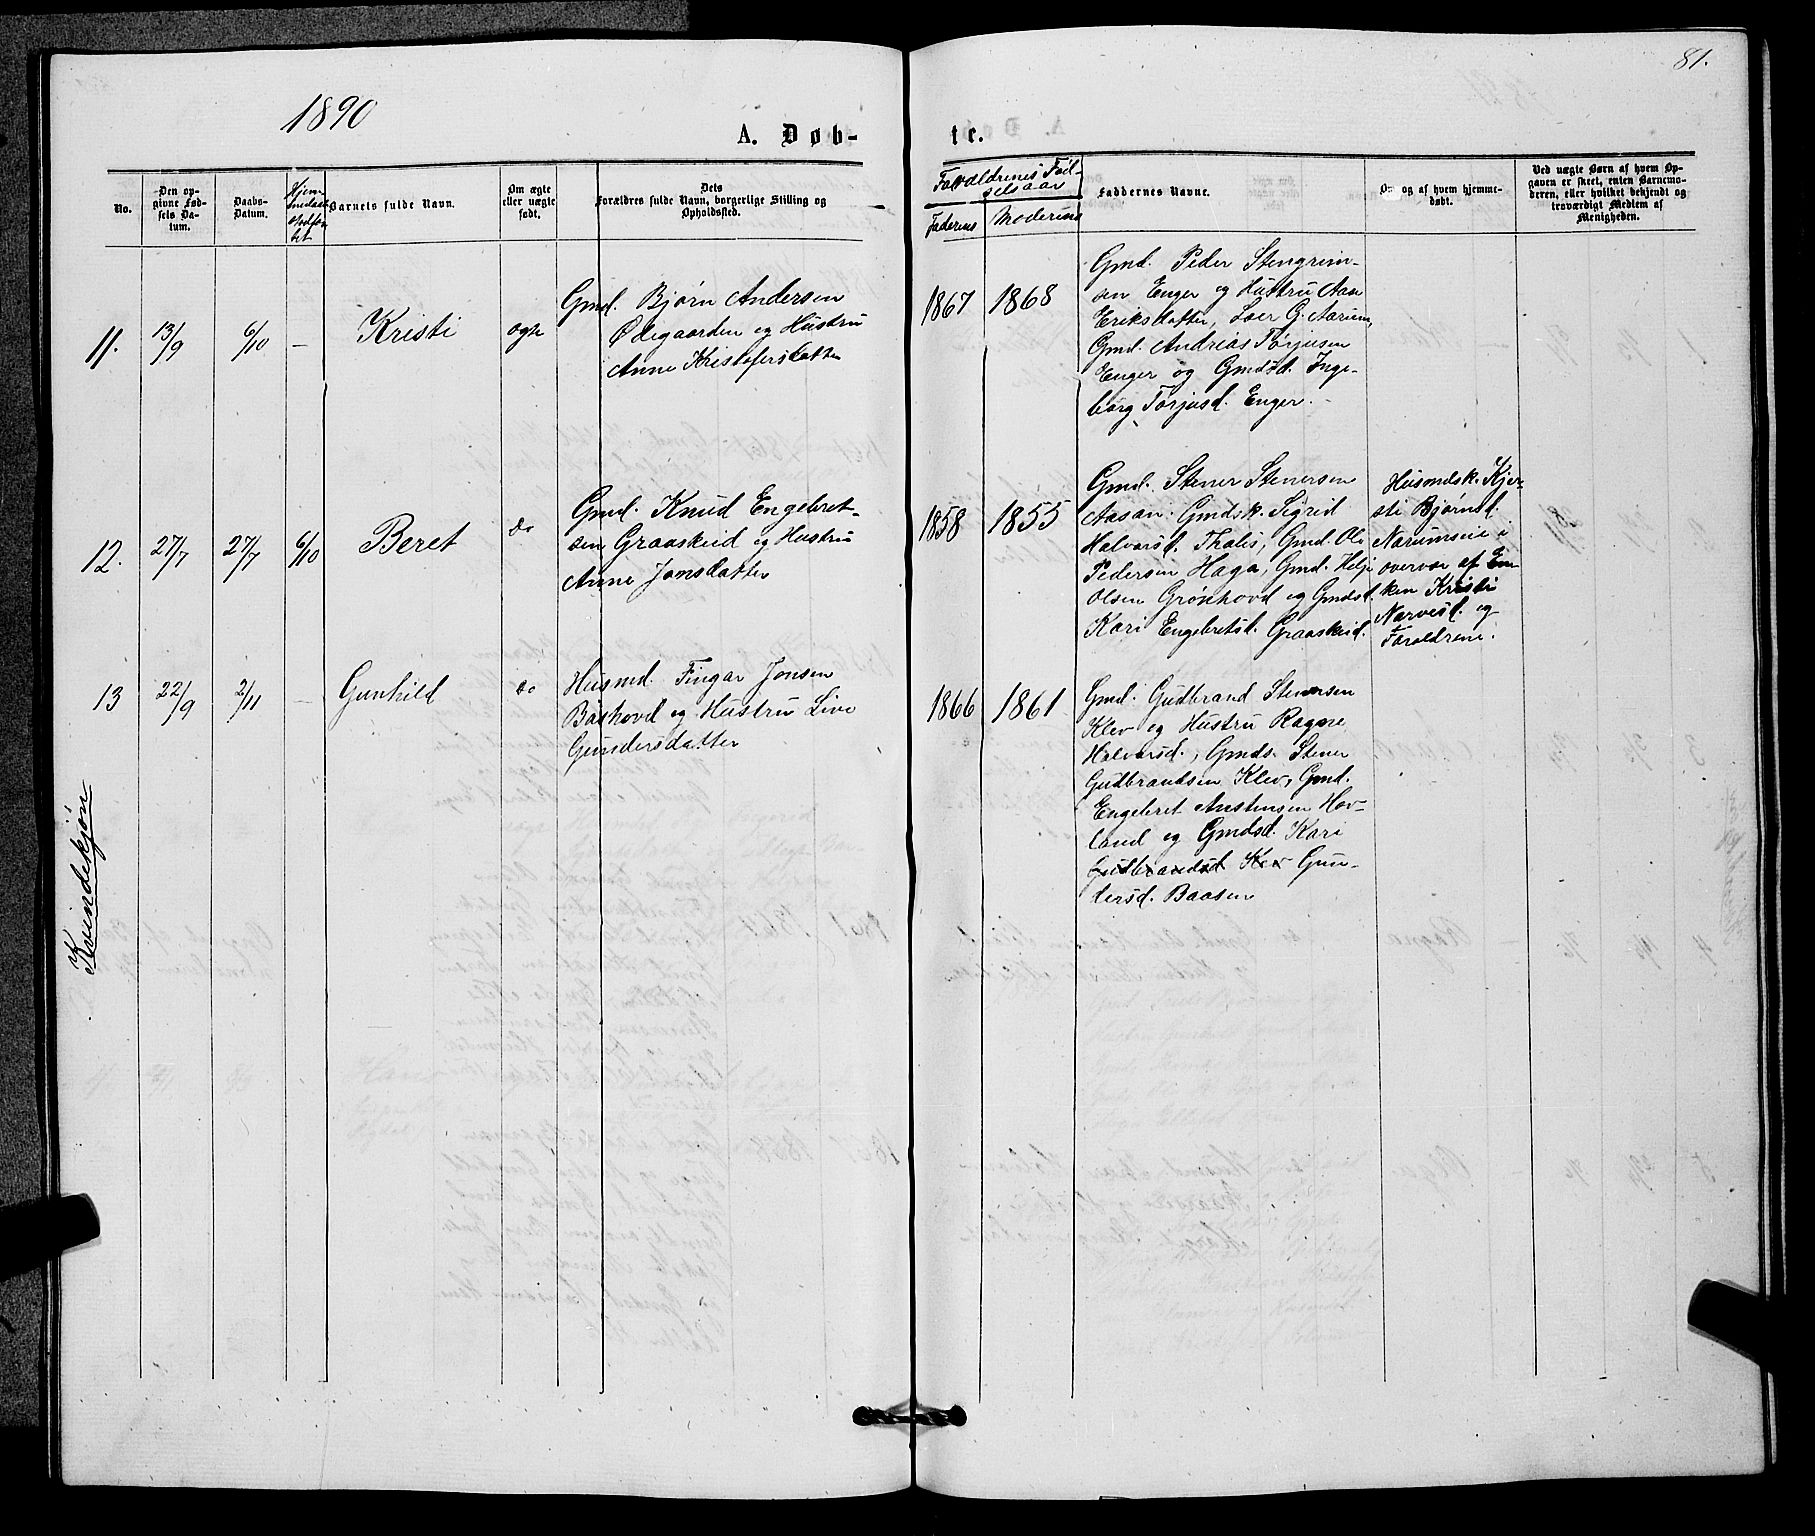 1890
81.
A. Døb-
te.
No.
Den op-
givne Fød-
sels Da-
tum.
Daabs-
Datum.
Hjemme-
daab
Barnets fulde Navn.
Om ægte
eller uægte
født.
Dets
Forældres fulde Navn, borgerlige Stilling og
Opholdssted.
Forældrenes Fød-
selsaar
Faderens
Moderens
Faddernes Navne.
Om og af hvem hjemme-
døbt.
Ved uægte Børn af hvem Op-
gaven er skeet, enten Barnemo-
deren, eller hvilket bekjendt og
troværdigt Medlem af
Menigheden.
11.
13/9
6/10
—
Kristi
ægte
Gmd. Bjørn Andersen
Ødegaarden og Hustru
Anne Kristofersdatter
1867
1868
Gmd. Peder Stengrim-
sen Enger og Hustru Aan
Eriksdatter, G. Narum,
Gmd. Andrias Torjusen
Enger og Gmdsd. Inge-
borg Torjusd. Enger.
12.
27/7
27/7
6/10
Beret
do
Gmd. Knud Engebret-
sen Graaskud og Hustru
Anne Jonsdatter
1858
1855
Gmd. Stener Stenersen
Aasan. Gmdsk. Sigrid
Halvorsd. Thales, Gmd. Ole
Pedersen Haga, Gmd. Helge
Olsen Grønhovd og Gmdsd.
Kari Engebretsd. Graaskud.
Husmdsk. Kjer-
sti Bjørnsd.
Narumseie i
overvær af En-
ken Kristi
Narvesd. og
Forældrene.
13
22/9
2/11
—
Gunhild
do
Husmd. Fingar Jonsen
Bashovd og Hustru Live
Gundersdatter
1866
1861
Gmd. Gudbrand Stenersen
Klev og Hustru Ragne
Halvorsd., Gmds. Stener
Gudbrandsen Klev, Gmd.
Engebret Austensen Hov-
land og Gmdsd. Kari
Gudbrandsd. Klev Gun-
dersd. Baasen
Kvindekjøn